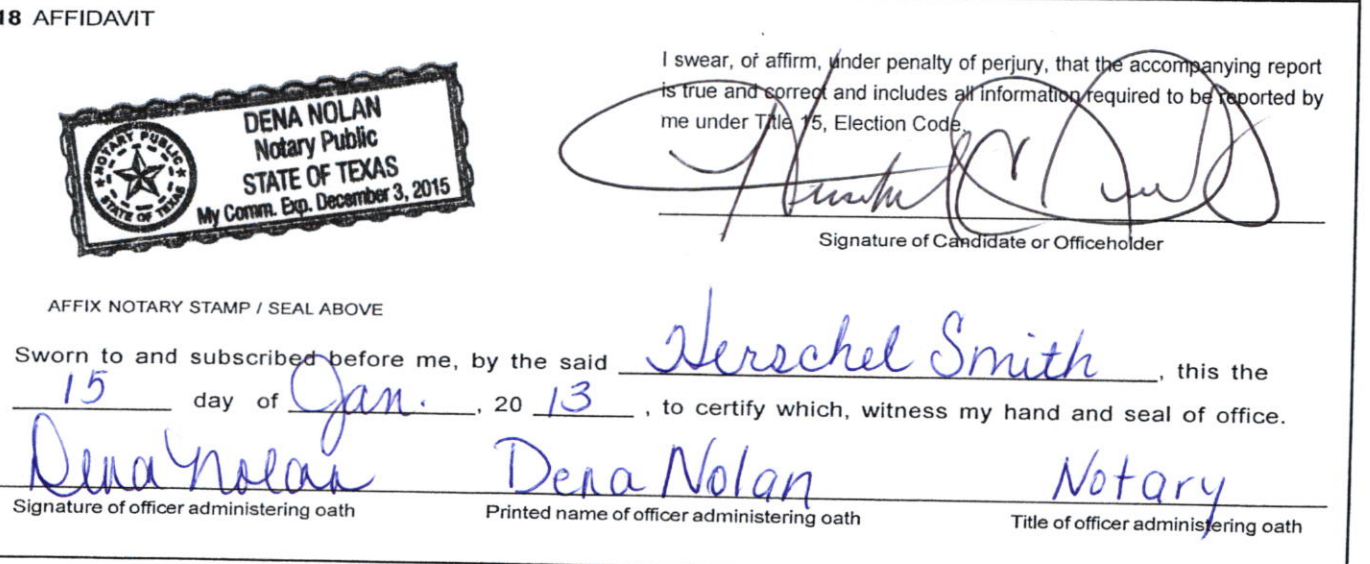 18 AFFIDAVIT
DENA NOLAN
Notary Public
STATE OF TEXAS
My Comm. Exp. December 3, 2015
NOTARY PUBLIC
STATE OF TEXAS
I swear, or affirm, under penalty of perjury, that the accompanying report
is true and correct and includes all information required to be reported by
me under Title 15, Election Code.
Signature of Candidate or Officeholder
AFFIX NOTARY STAMP / SEAL ABOVE
Sworn to and subscribed before me, by the said Herschel Smith, this the
15 day of Jan., 20 13, to certify which, witness my hand and seal of office.
Dena Nolan Dena Nolan Notary
Signature of officer administering oath Printed name of officer administering oath Title of officer administering oath